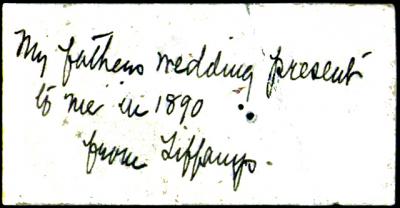 My fathers wedding present
to me in 1890
from Tiffanys.